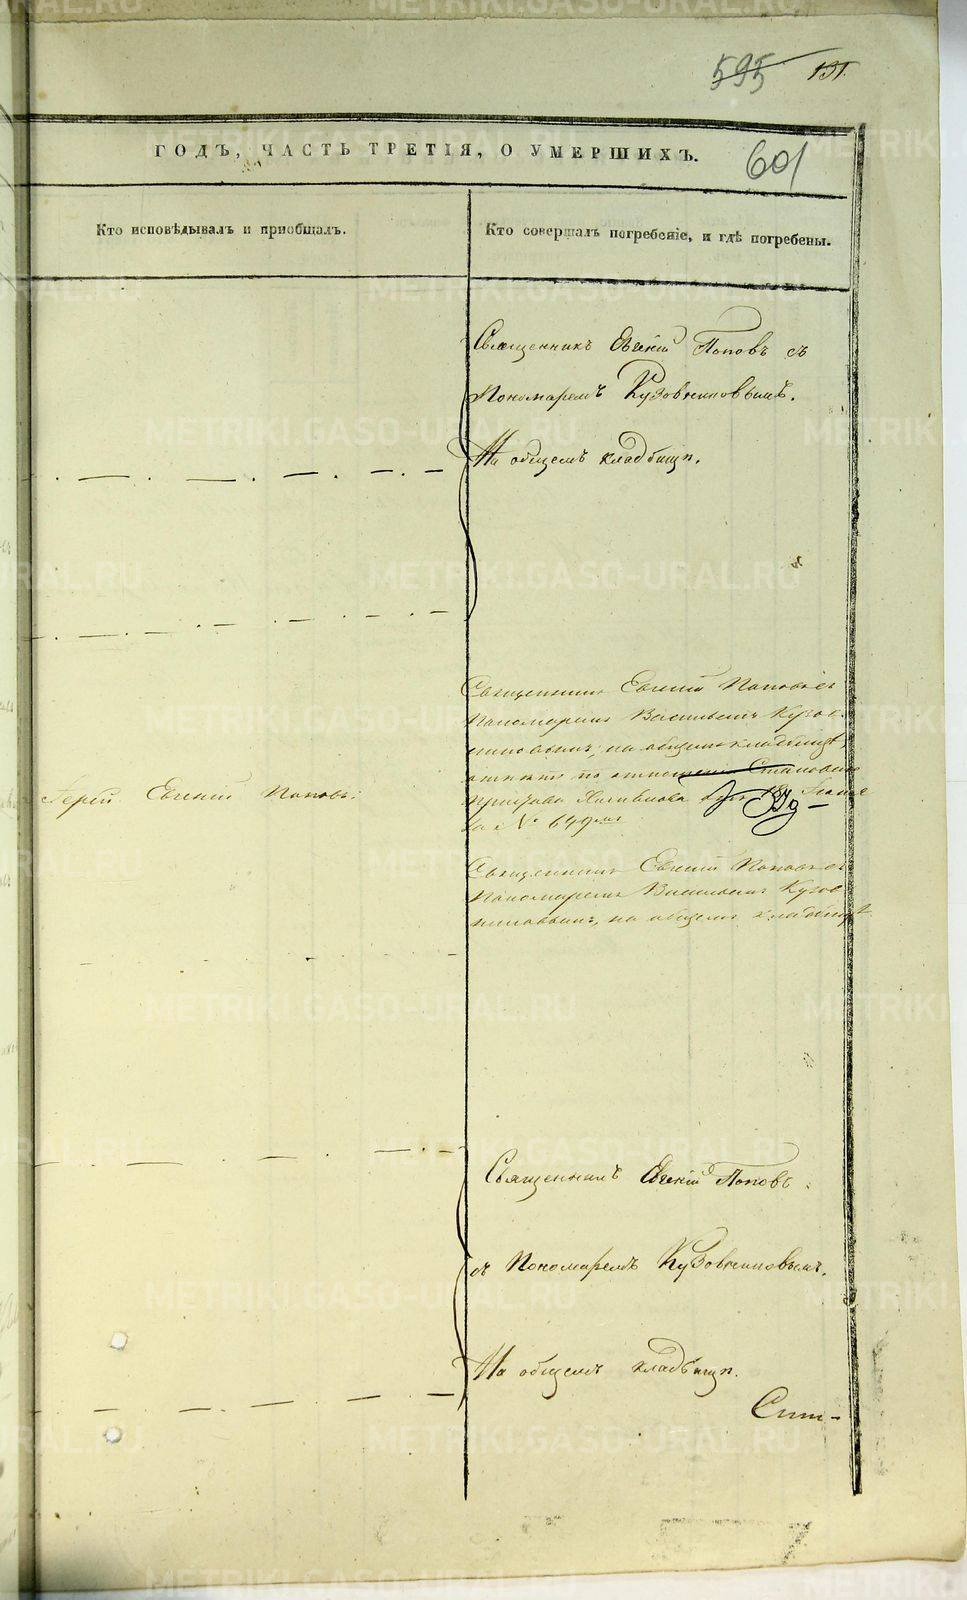 595 191.
ГОДЪ, ЧАСТЬ ТРЕТІЯ, О УМЕРШИХЪ.
601
Кто исповѣдывалъ и пріобщалъ.
Кто совершалъ погребеніе, и гдѣ погребены.
Священникъ Евгеній Поповъ съ
Пономаремъ Кузовниковымъ.
На общемъ кладбищѣ.
Священникъ Евгеній Поповъ съ
Пономаремъ Васильемъ Кузов
никовымъ, на общемъ кладбищѣ,
по отношенію Становаго
Пристава
за № 649
Іерей Евгеній Поповъ.
Священникъ Евгеній Поповъ съ
Пономаремъ Васильемъ Кузов
никовымъ, на общемъ кладбищѣ
Священникъ Евгеній Поповъ
съ Пономаремъ Кузовниковымъ.
На общемъ кладбищѣ.
METRIKI.GASO-URAL.RU